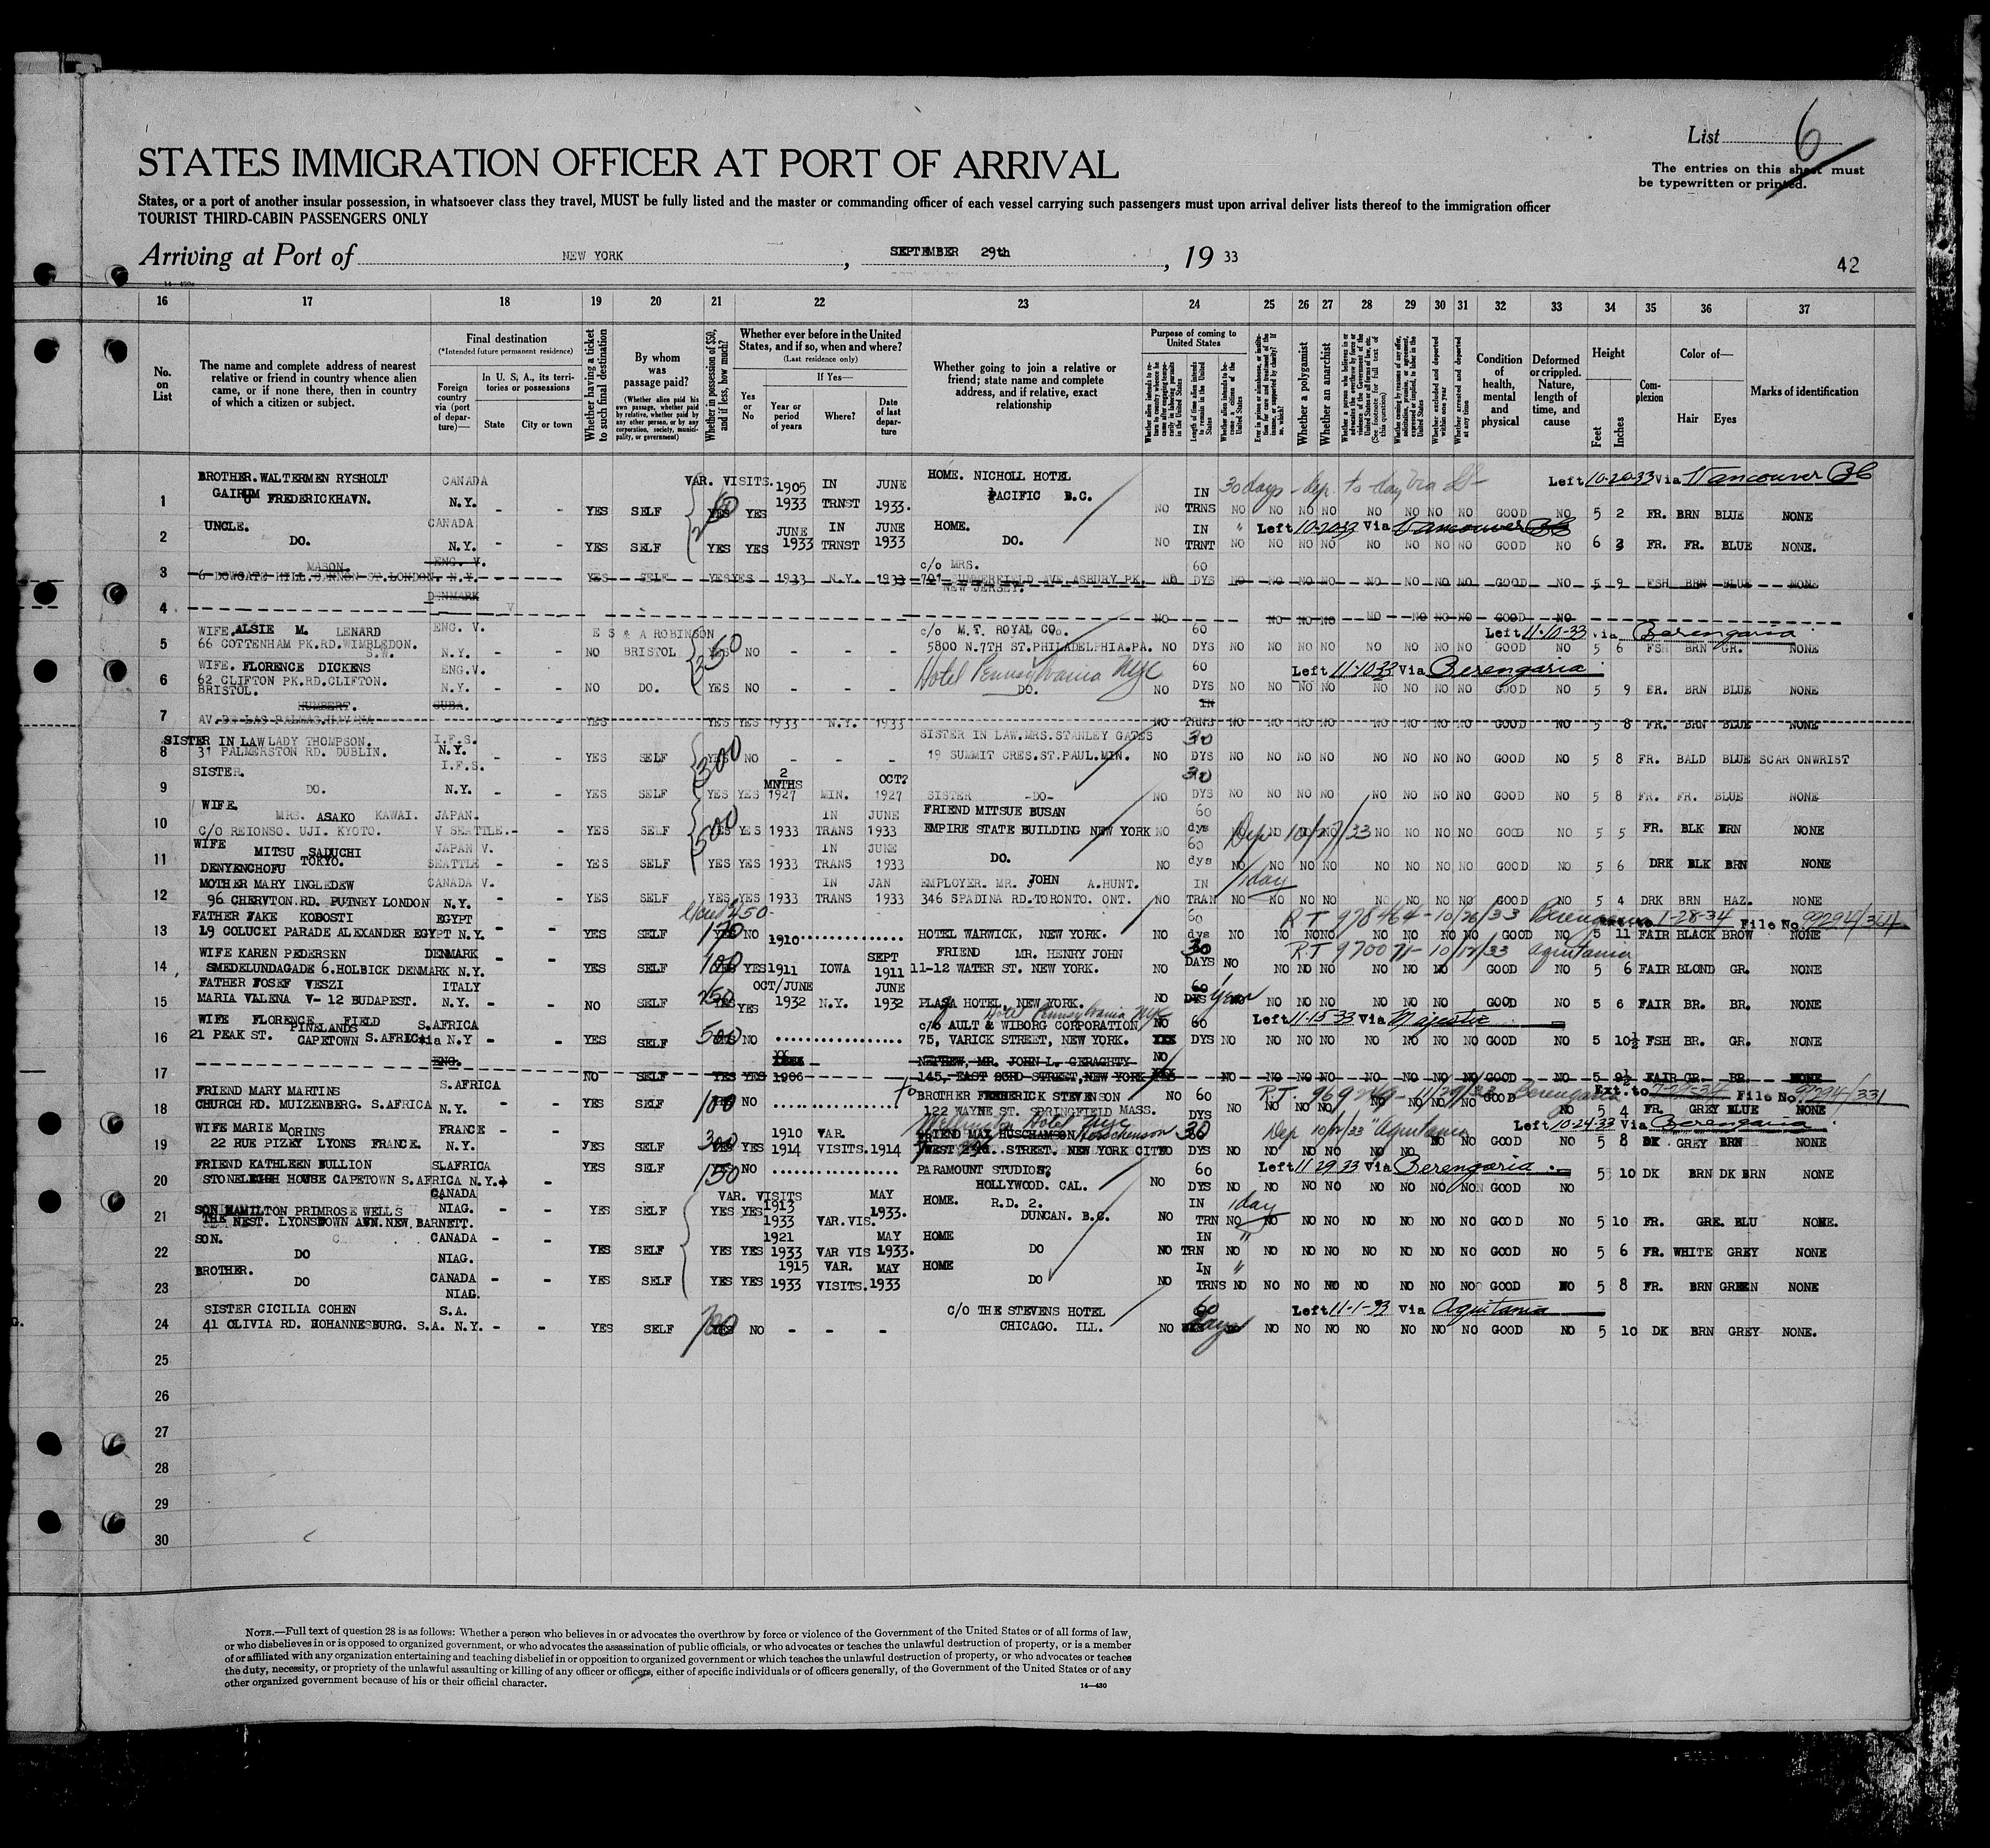 List 6
The entries on this sheet must
be typewritten or printed.
STATES IMMIGRATION OFFICER AT PORT OF ARRIVAL
States, or a port of another insular possession, in whatsoever class they travel, MUST be fully listed and the master or commanding officer of each vessel carrying such passengers must upon arrival deliver lists thereof to the immigration officer
TOURIST THIRD-CABIN PASSENGERS ONLY
Arriving at Port of NEW YORK, SEPTEMBER 29th, 19 33
42
16 17 18 19 20 21 22 23 24 25 26 27 28 29 30 31 32 33 34 35 36 37
No. on List
The name and complete address of nearest relative or friend in country whence alien came, or if none there, then in country of which a citizen or subject.
Final destination
(*Intended future permanent residence)
Foreign country via (port of departure)—
In U. S. A., its territories or possessions
State City or town
Whether having a ticket to such final destination
By whom was passage paid?
(Whether alien paid his own passage, whether paid by relative, whether paid by any other person, or by any corporation, society, municipality, or government)
Whether in possession of $50, and if less, how much?
Whether ever before in the United States, and if so, when and where?
(Last residence only)
Yes or No
If Yes—
Year or period of years Where? Date of last departure
Whether going to join a relative or friend; state name and complete address, and if relative, exact relationship
Purpose of coming to United States
Length of time alien intends to remain in the United States
Whether a polygamist
Whether an anarchist
Whether excluded and deported within one year
Whether arrested and deported at any time
Condition of health, mental and physical
Deformed or crippled. Nature, length of time, and cause
Height
Feet Inches
Complexion
Color of—
Hair Eyes
Marks of identification
BROTHER. WALTERMEN RYSHOLT CANADA VAR. VISITS. 1905 IN JUNE HOME. NICHOLL HOTEL 30 days - dep. to-day via Left 10-20-33 Via Vancouver BC
1 FREDERICKHAVN. N.Y. - - YES SELF YES YES 1933 TRNST 1933. PACIFIC B.C. NO IN TRNS NO NO NO NO NO NO NO NO GOOD NO 5 2 FR. BRN BLUE NONE
UNCLE. CANADA JUNE IN JUNE HOME. IN " Left 10-20-33 Via Vancouver BC
2 DO. N.Y. - - YES SELF YES YES 1933 TRNST 1933 DO. NO TRNT NO NO NO NO NO NO NO NO GOOD NO 6 3 FR. FR. BLUE NONE.
MASON. ENG. V. c/o MRS. 60
3 6 DOWGATE HILL CANNON ST. LONDON. N.Y. YES SELF YES YES 1933 N.Y. 1933 SUMMERFIELD AVE. ASBURY PK. NO DYS NO NO NO NO NO NO NO NO GOOD NO 5 9 FSH BRN BLUE NONE
DENMARK NEW JERSEY.
4 NO NO NO NO NO NO NO NO GOOD NO
WIFE. ALSIE M. LENARD ENG. V. E S & A ROBINSON c/o M.T. ROYAL CO. 60 Left 11-10-33 via Berengaria
5 66 COTTENHAM PK.RD.WIMBLEDON. S.W. N.Y. - - NO BRISTOL YES NO - - - 5800 N.7TH ST.PHILADELPHIA.PA. NO DYS NO NO NO NO NO NO NO NO GOOD NO 5 6 FSH BRN GR. NONE
WIFE. FLORENCE DICKENS ENG.V. Hotel Pennsylvania NYC 60 Left 11-10-33 Via Berengaria
6 62 CLIFTON PK.RD.CLIFTON. BRISTOL. N.Y. - - NO DO. YES NO - - - DO. NO DYS NO NO NO NO NO NO NO NO GOOD NO 5 9 BRN BLUE NONE
HUMBERT. CUBA. IN
7 AV.DE LAS PALMAS.HAVANA - - YES YES YES 1933 N.Y. 1933 NO TRNS NO NO NO NO NO NO NO NO GOOD NO 5 8 FR. BRN BLUE NONE
SISTER IN LAW LADY THOMPSON. I.F.S. 300 SISTER IN LAW.MRS.STANLEY GATES 30
8 31 PALMERSTON RD. DUBLIN. N.Y. - - YES SELF YES NO - - - 19 SUMMIT CRES.ST.PAUL.MIN. NO DYS NO NO NO NO NO NO NO NO GOOD NO 5 8 FR. BALD BLUE SCAR ONWRIST
SISTER. I.F.S. 2 MNTHS OCT? 30
9 DO. N.Y. - - YES SELF YES YES 1927 MIN. 1927 SISTER -DO- NO DYS NO NO NO NO NO NO NO NO GOOD NO 5 8 FR. FR. BLUE NONE
WIFE. MRS. ASAKO KAWAI. JAPAN. 500 IN JUNE FRIEND MITSUE BUSAN 60 Dep 10/27/33
10 C/O REIONSO. UJI. KYOTO. V SEATTLE.- - YES SELF YES YES 1933 TRANS 1933 EMPIRE STATE BUILDING NEW YORK NO dys NO NO NO NO NO NO NO GOOD NO 5 5 FR. BLK BRN NONE
WIFE MITSU SADUCHI JAPAN V. IN JUNE 60
11 DENYENCHOFU TOKYO. SEATTLE - - YES SELF YES YES 1933 TRANS 1933 DO. NO dys NO NO NO NO NO NO NO NO GOOD NO 5 6 DRK BLK BRN NONE
MOTHER MARY INGLEDEW CANADA V. IN JAN EMPLOYER. MR. JOHN A.HUNT. IN 1 day
12 96 CHERVTON.RD. PUTNEY LONDON N.Y. - - YES SELF YES YES 1933 TRANS 1933 346 SPADINA RD.TORONTO. ONT. NO TRAN NO NO NO NO NO NO NO NO GOOD NO 5 4 DRK BRN HAZ. NONE
FATHER JAKE KOBOSTI EGYPT 60 R.T. 978464 - 10/26/33 Berengaria to 1-28-34 File No. 99294/364
13 19 COLUCEI PARADE ALEXANDER EGYPT N.Y. - - YES SELF 170 NO HOTEL WARWICK, NEW YORK. NO dys NO NO NO NO NO NO NO NO GOOD NO 5 11 FAIR BLACK BROW NONE
WIFE KAREN PEDERSEN DENMARK 1910 SEPT FRIEND MR. HENRY JOHN 30 R.T 970071 - 10/17/33 Aquitania
14 SMEDELUNDAGADE 6.HOLBICK DENMARK N.Y. - YES SELF 100 YES 1911 IOWA 1911 11-12 WATER ST. NEW YORK. NO DAYS NO NO NO NO NO NO NO GOOD NO 5 6 FAIR BLOND GR. NONE
FATHER JOSEF VESZI ITALY OCT/JUNE JUNE 60
15 MARIA VALENA V- 12 BUDAPEST. N.Y. - - NO SELF 250 YES 1932 N.Y. 1932 PLAZA HOTEL, NEW YORK. NO DYS year NO NO NO NO NO NO GOOD NO 5 6 FAIR BR. BR. NONE
WIFE FLORENCE FIELD S.AFRICA Hotel Pennsylvania NYC c/o AULT & WIBORG CORPORATION NO 60 Left 11-15-33 Via Majestic
16 21 PEAK ST. PINELANDS CAPETOWN S.AFRICA via N.Y - - YES SELF 500 NO 75, VARICK STREET, NEW YORK. DYS NO NO NO NO NO NO NO NO GOOD NO 5 10½ FSH BR. GR. NONE
ENG. NEPHEW, MR. JOHN L. GERAGHTY NO
17 NO SELF YES YES 1906 145, EAST STREET, NEW YORK NO NO NO NO NO NO NO GOOD NO 5 9½ FAIR GR. BR. NONE
FRIEND MARY MARTINS S.AFRICA BROTHER FREDERICK STEVENSON NO 60 Berengaria Ext. to File No. 99294/331
18 CHURCH RD. MUIZENBERG. S.AFRICA N.Y. - - YES SELF 100 NO 122 WAYNE ST. SPRINGFIELD MASS. DYS NO NO NO NO NO NO NO GOOD NO 5 4 FR. GREY BLUE NONE
WIFE MARIE MORINS FRANCE 1910 VAR. Wellington Hotel NYC FRIEND MAX 30 Dep 10/12/33 "Aquitania Left 10-24-33 Via Berengaria
19 22 RUE PIZEY LYONS FRANCE. N.Y. - YES SELF 300 YES 1914 VISITS. 1914 WEST STREET. NEW YORK CITY NO DYS NO NO NO NO NO NO NO NO GOOD NO 5 8 DK GREY BRN NONE
FRIEND KATHLEEN BULLION S.AFRICA YES SELF 150 NO PARAMOUNT STUDIOS, 60 Left 11 29 33 Via Berengaria
20 STONELEIGH HOUSE CAPETOWN S.AFRICA N.Y. - HOLLYWOOD. CAL. NO DYS NO NO NO NO NO NO NO NO GOOD NO 5 10 DK BRN DK BRN NONE
CANADA VAR. VISITS MAY
21 SON HAMILTON PRIMROSE WELLS NIAG. - - YES SELF YES YES 1913 1933. HOME. R.D. 2. IN 1 day
THE NEST. LYONSDOWN AVN.NEW.BARNETT. 1933 VAR.VIS. DUNCAN. B.C. NO TRN NO NO NO NO NO NO NO NO GOOD NO 5 10 FR. GRE. BLU NONE.
SON. CANADA 1921 MAY HOME IN "
22 DO NIAG. - - YES SELF YES YES 1933 VAR VIS 1933. DO NO TRN NO NO NO NO NO NO NO NO GOOD NO 5 6 FR. WHITE GREY NONE
BROTHER. 1915 VAR. MAY HOME IN "
23 DO CANADA NIAG. - - YES SELF YES YES 1933 VISITS. 1933 DO NO TRNS NO NO NO NO NO NO NO NO GOOD NO 5 8 FR. BRN GREEN NONE
SISTER CICILIA COHEN S.A. c/o THE STEVENS HOTEL 60 Left 11-1-33 Via Aquitania
24 41 OLIVIA RD. HOHANNESBURG. S.A. N.Y. - - YES SELF NO - - - CHICAGO. ILL. NO days NO NO NO NO NO NO NO NO GOOD NO 5 10 DK BRN GREY NONE.
25
26
27
28
29
30
NOTE.—Full text of question 28 is as follows: Whether a person who believes in or advocates the overthrow by force or violence of the Government of the United States or of all forms of law,
or who disbelieves in or is opposed to organized government, or who advocates the assassination of public officials, or who advocates or teaches the unlawful destruction of property, or is a member
of or affiliated with any organization entertaining and teaching disbelief in or opposition to organized government or which teaches the unlawful destruction of property, or who advocates or teaches
the duty, necessity, or propriety of the unlawful assaulting or killing of any officer or officers, either of specific individuals or of officers generally, of the Government of the United States or of any
other organized government because of his or their official character.
14—430